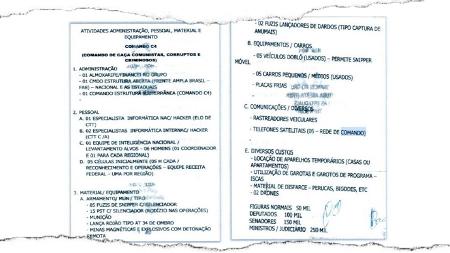 ATIVIDADES ADMINISTRAÇÃO, PESSOAL, MATERIAL E
EQUIPAMENTO
COMANDO C4
(COMANDO DE CAÇA COMUNISTAS, CORRUPTOS E
CRIMINOSOS)
1. ADMINISTRAÇÃO
- 01 ALMOXARIFE/FINANCEIRO GRUPO
- 01 CMDO ESTRUTURA ABERTA (FRENTE AMPLA BRASIL –
FAB) – NACIONAL E AS ESTADUAIS
- 01 COMANDO ESTRUTURA SUBTERRÂNEA (COMANDO C4)
2. PESSOAL
A. 01 ESPECIALISTA INFORMÁTICA NAC/ HACKER (ELO DE
CTT)
B. 02 ESPECIALISTAS INFORMÁTICA INTERNAC/ HACKER
(CTT C /A)
C. 01 EQUIPE DE INTELIGÊNCIA NACIONAL /
LEVANTAMENTO ALVOS – 06 HOMENS (01 COORDENADOR
E 01 PARA CADA REGIONAL)
D. 05 CÉLULAS INICIALMENTE (05 H CADA /
RECONHECIMENTO E OPERAÇÕES – EQUIPE RECEITA
FEDERAL – UMA POR REGIÃO)
3. MATERIAL/ EQUIPAMENTO
A. ARMAMENTO/ MUN / TIRO
- 05 FUZIS DE SNIPPER C/SILENCIADOR
- 15 PST C/ SILENCIADOR (RODÍZIO NAS OPERAÇÕES)
- MUNIÇÃO
- LANÇA ROJÃO TIPO AT 34 DE OMBRO
- MINAS MAGNÉTICAS E EXPLOSIVOS COM DETONAÇÃO
REMOTA
- 02 FUZIS LANÇADORES DE DARDOS (TIPO CAPTURA DE
ANUMAIS)
B. EQUIPAMENTOS / CARROS
- 05 VEÍCULOS DOBLÔ (USADOS) – PERMITE SNIPPER
MÓVEL
- 05 CARROS PEQUENOS / MÉDIOS (USADOS)
- PLACAS FRIAS
C. COMUNICAÇÕES / DIVERSOS
- RASTREADORES VEICULARES
- TELEFONES SATELITAIS (05 – REDE DE COMANDO)
E. DIVERSOS CUSTOS
- LOCAÇÃO DE APARELHOS TEMPORÁRIOS (CASAS OU
APARTAMENTOS)
- UTILIZAÇÃO DE GAROTAS E GAROTOS DE PROGRAMA -
ISCAS
- MATERIAL DE DISFARCE - PERUCAS, BIGODES, ETC
- 02 DRONES
FIGURAS NORMAIS 50 MIL
DEPUTADOS 100 MIL
SENADORES 150 MIL
MINISTROS / JUDICIÁRIO 250 MIL